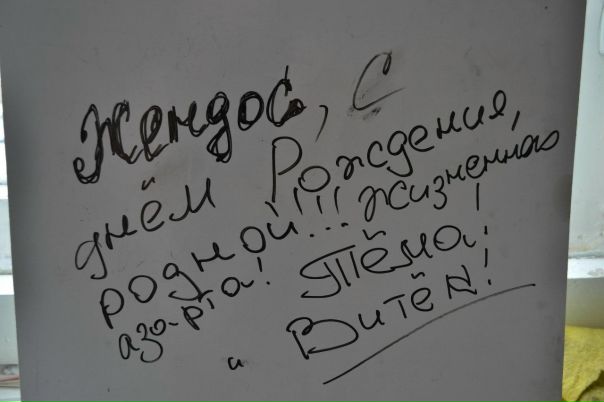 Жендос, С
днём Рождения,
родной!!! Жизненного
азарта! Тёма!
и Витёк!